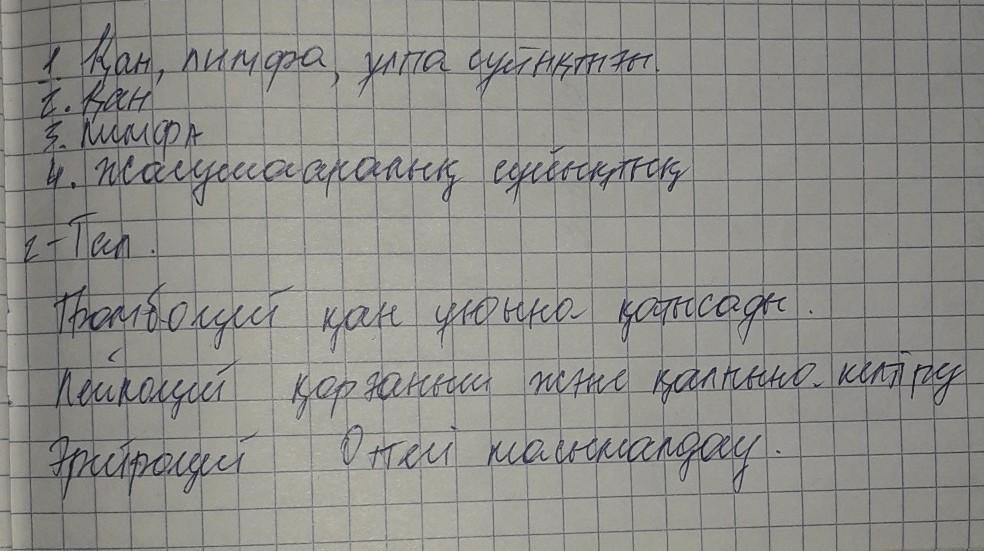 1. Қан, лимфа, ұлпа сұйықтығы.
2. Қан
3. Лимфа
4. Жасушааралық сұйықтық
2-Тап.
Тромбоцит қан ұюына қатысады.
Лейкоцит қорғаныш және қалпына келтіру
Эритроцит Оттегі тасымалдау.